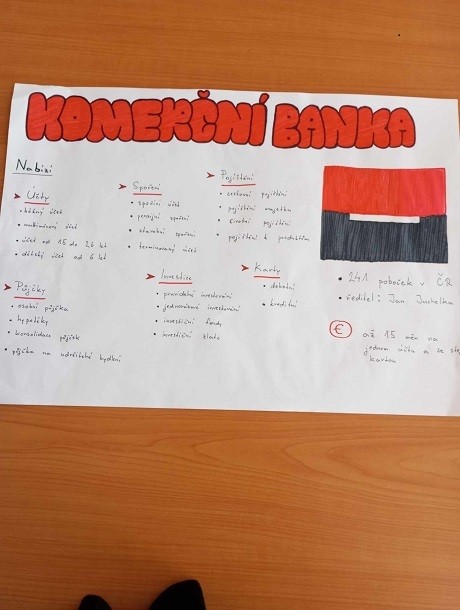 KOMERČNÍ BANKA
Nabízí
Účty
• běžný účet
• multiměnový účet
• účet od 15 do 26 let
• dětský účet od 6 let
Půjčky
• osobní půjčka
• hypotéky
• konsolidace půjček
• půjčka na udržitelné bydlení
Spoření
• spořicí účet
• penzijní spoření
• stavební spoření
• termínovaný účet
Investice
• pravidelné investování
• jednorázové investování
• investiční fondy
• investiční zlato
Pojištění
• cestovní pojištění
• pojištění majetku
• životní pojištění
• pojištění k produktům
Karty
• debetní
• kreditní
• 241 poboček v ČR
• ředitel: Jan Juchelka
€ až 15 měn na
jednom účtu a se
kartou